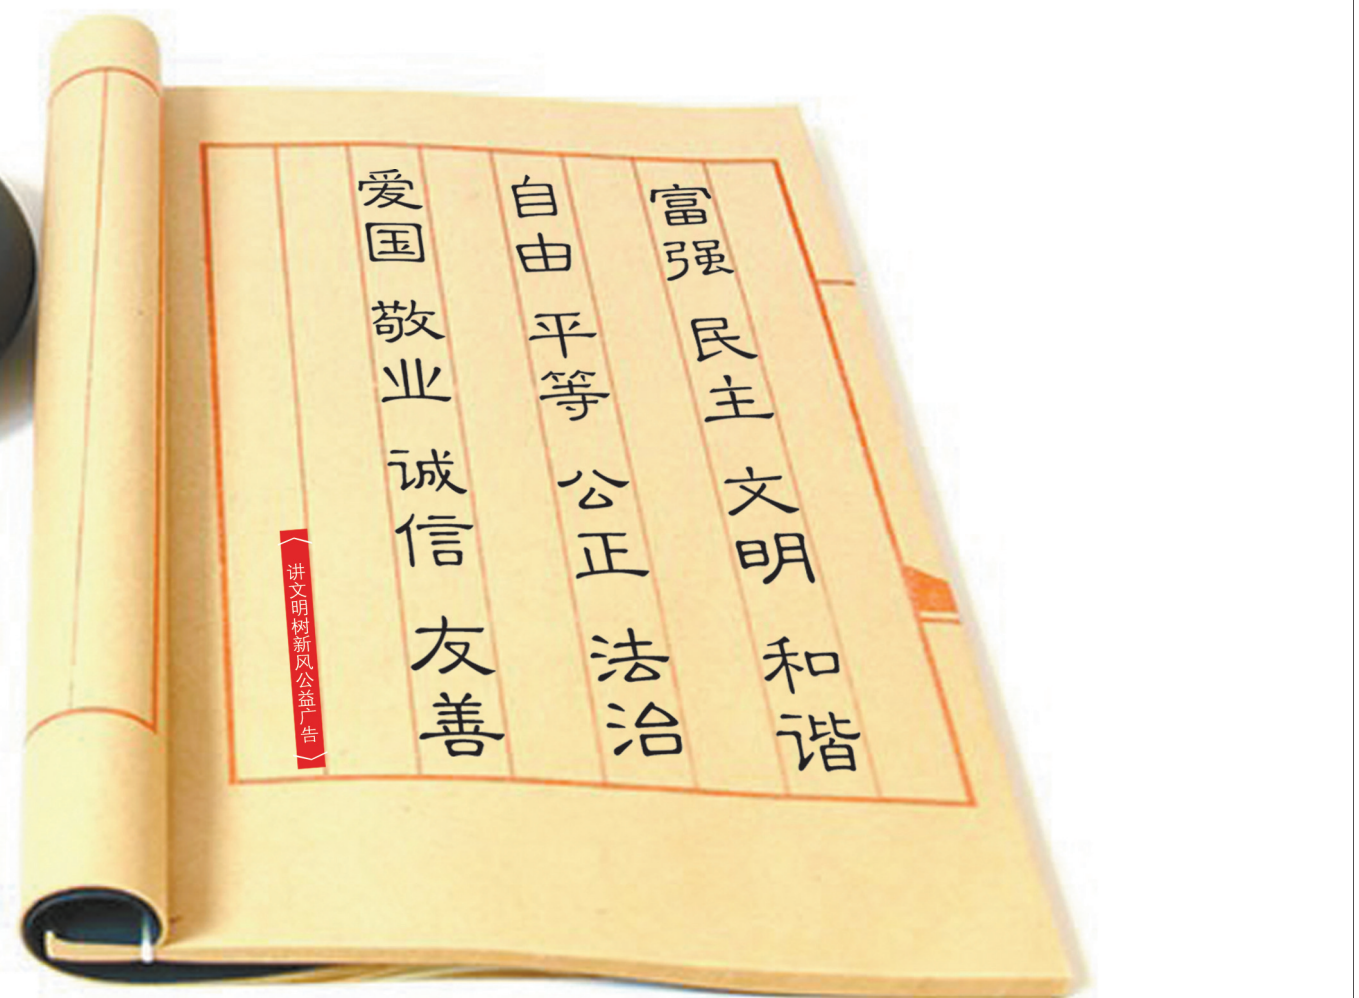 富强 民主 文明 和谐
自由 平等 公正 法治
爱国 敬业 诚信 友善
讲文明树新风公益广告